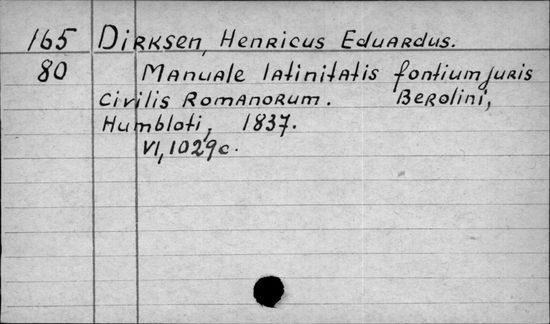 165 Dirksen, Henricus Eduardus.
80 Manuale latinitatis fontium juris
civilis Romanorum. Berolini,
Humbloti, 1837.
VI, 1029c.